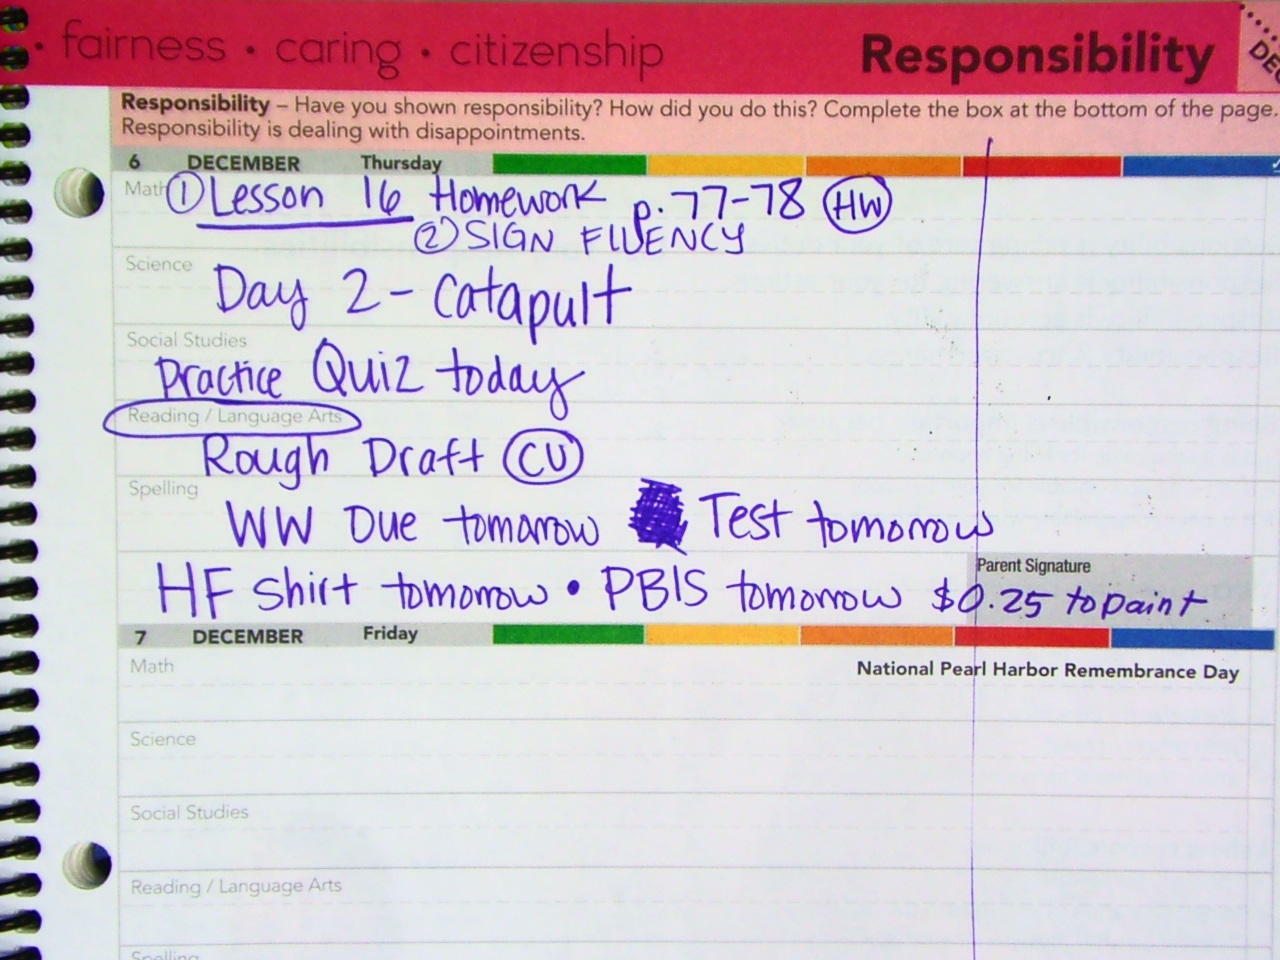 • fairness • caring • citizenship Responsibility
Responsibility – Have you shown responsibility? How did you do this? Complete the box at the bottom of the page.
Responsibility is dealing with disappointments.
6 DECEMBER Thursday
Math ① Lesson 16 Homework p. 77-78 HW
② SIGN FLUENCY
Science
Day 2 - Catapult
Social Studies
Practice Quiz today
Reading / Language Arts
Rough Draft CU
Spelling
WW Due tomorrow Test tomorrow
Parent Signature
HF shirt tomorrow • PBIS tomorrow $0.25 to paint
7 DECEMBER Friday
Math National Pearl Harbor Remembrance Day
Science
Social Studies
Reading / Language Arts
Spelling